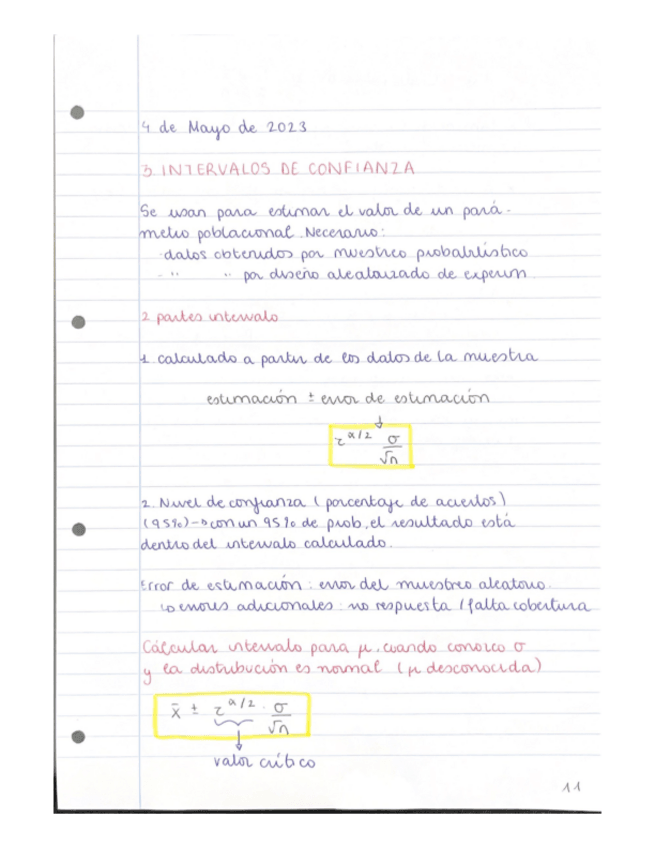 4 de Mayo de 2023
3. INTERVALOS DE CONFIANZA
Se usan para estimar el valor de un pará-
metro poblacional. Necesario:
-datos obtenidos por muestreo probabilístico
- " " por diseño aleatorizado de experim
2 partes intervalo
1. calculado a partir de los datos de la muestra
estimación ± error de estimación
↓
z^α/2 σ/√n
2. Nivel de confianza (porcentaje de aciertos)
(95%)→con un 95% de prob, el resultado está
dentro del intervalo calculado.
Error de estimación: error del muestreo aleatorio.
↳ errores adicionales: no respuesta / falta cobertura
Cálcular intervalo para μ, cuando conozco σ
y la distribución es normal (μ desconocida)
x̄ ± z^α/2 · σ/√n
↓
valor crítico
11